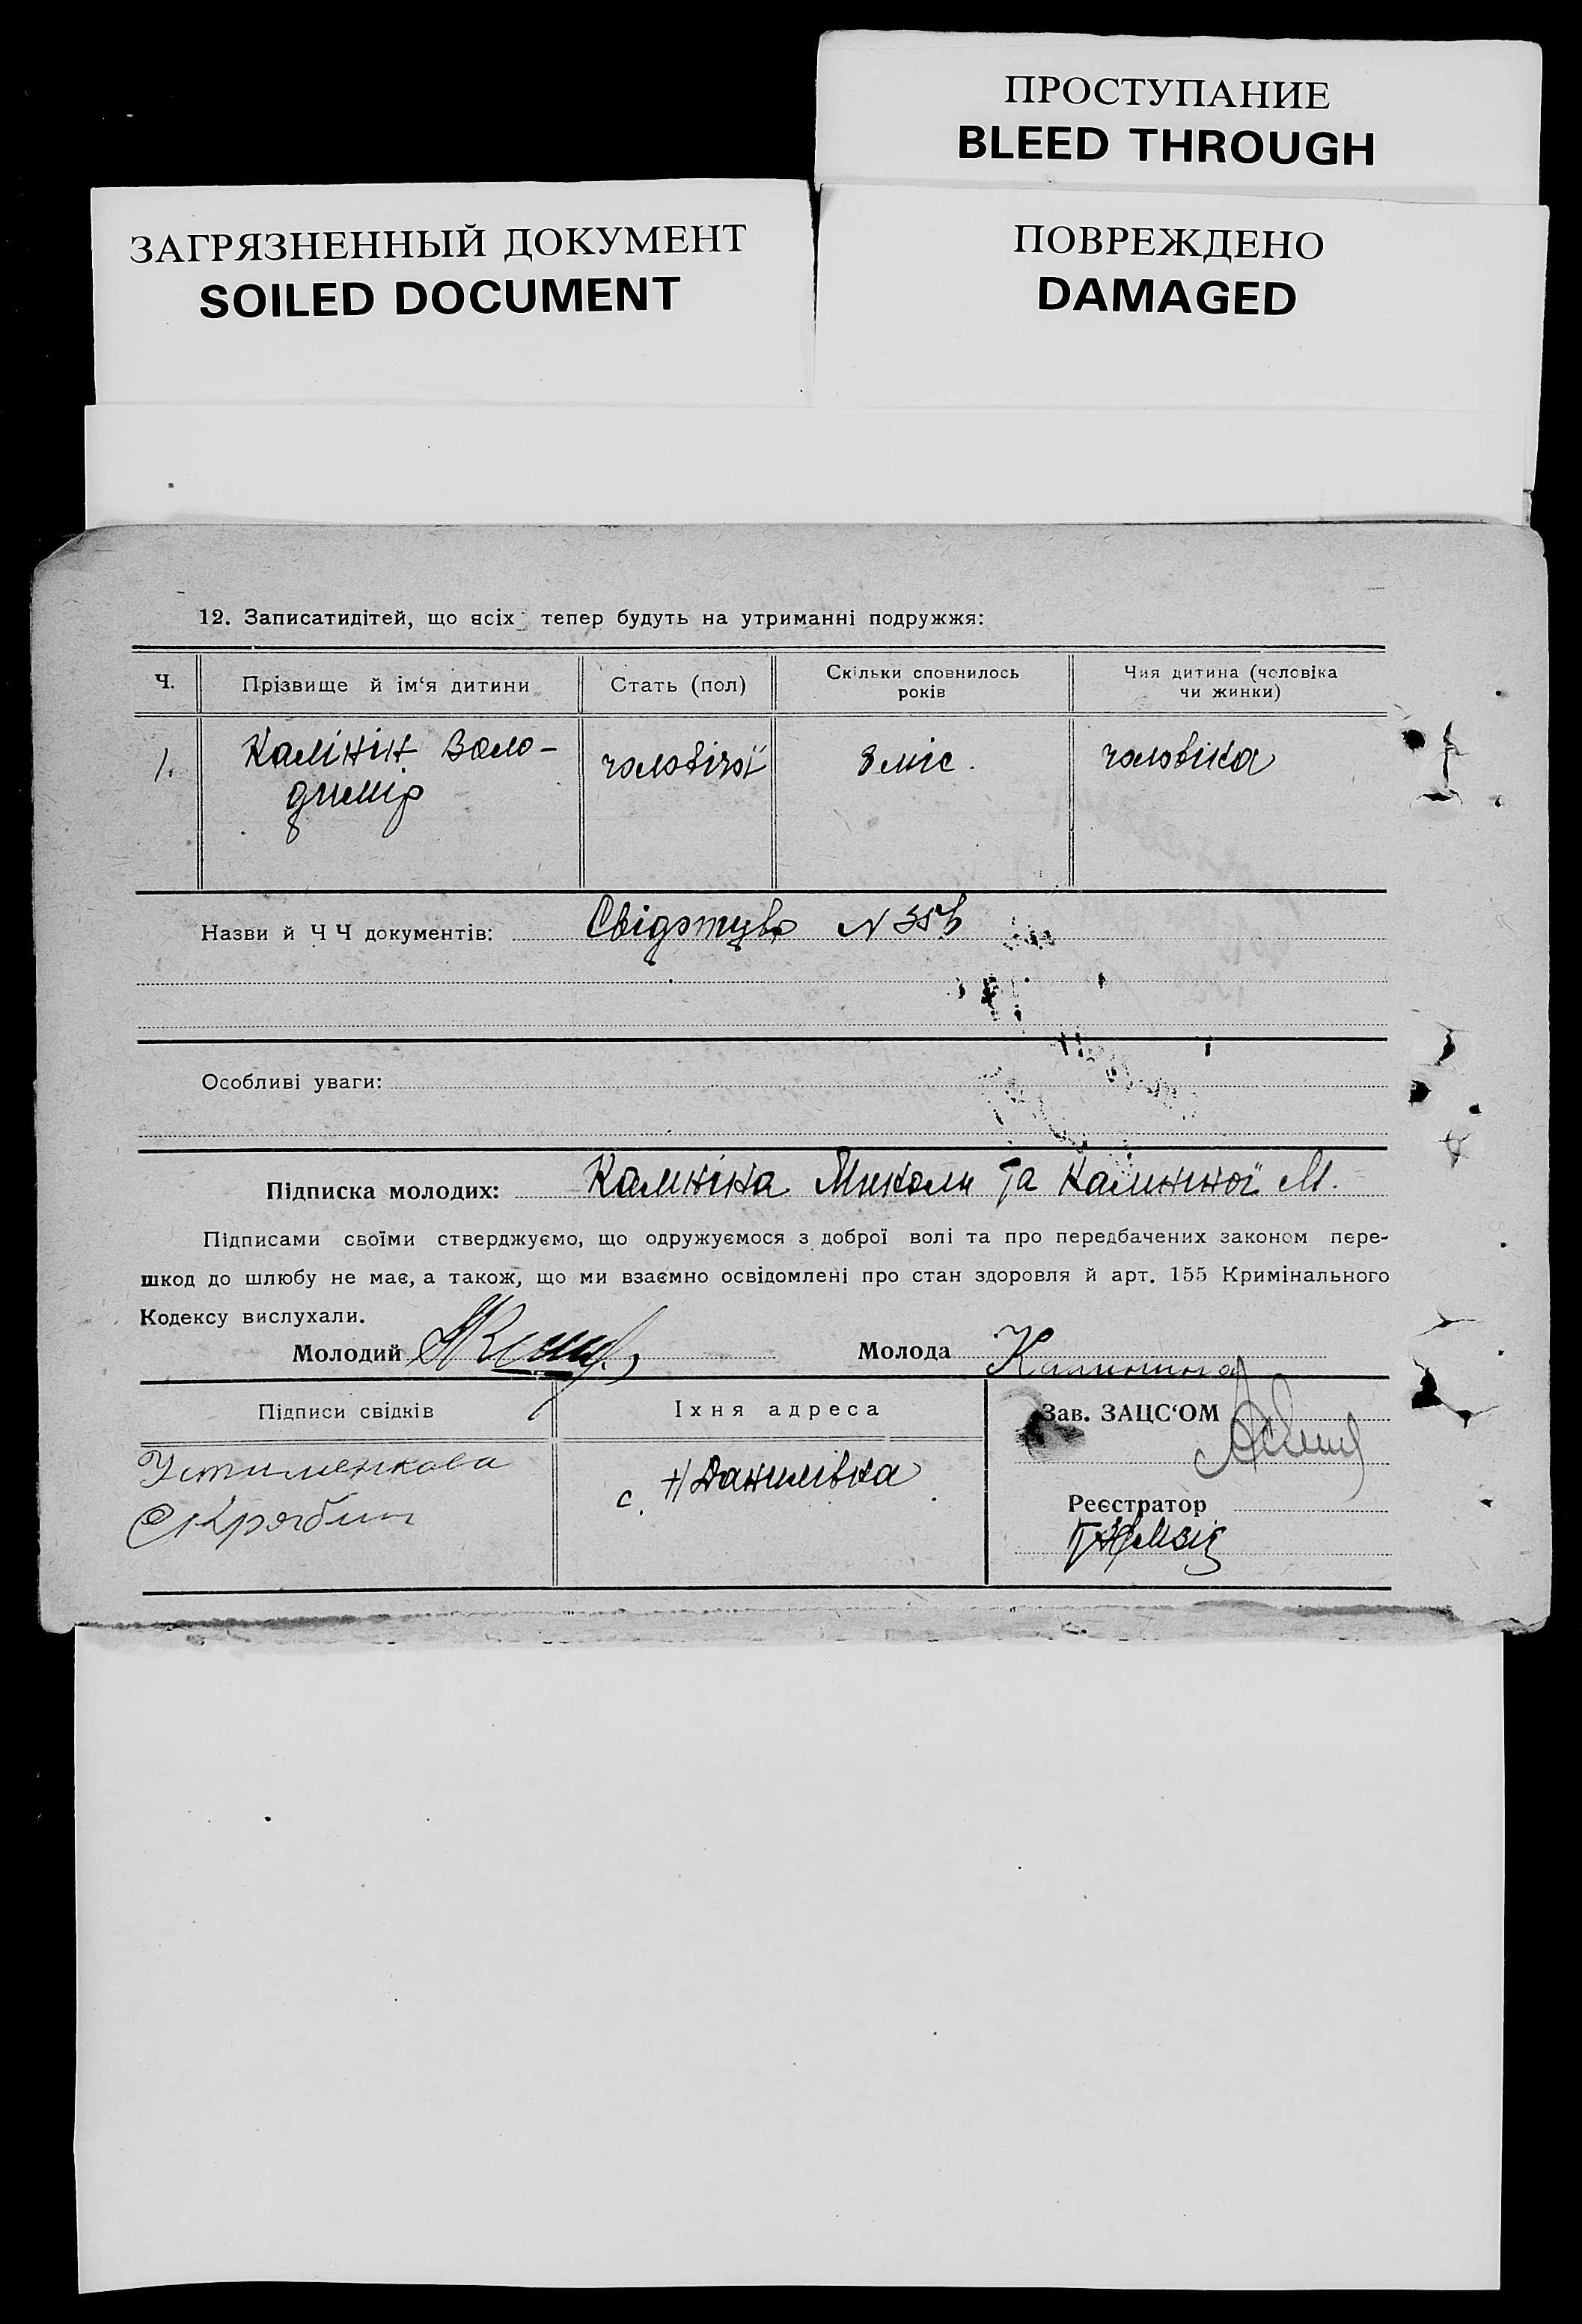 ПРОСТУПАНИЕ
BLEED THROUGH
ЗАГРЯЗНЕННЫЙ ДОКУМЕНТ
SOILED DOCUMENT
ПОВРЕЖДЕНО
DAMAGED
12. Записатидітей, що всіх тепер будуть на утриманні подружжя:
Ч.
Прізвище й ім‘я дитини
Стать (пол)
Скільки сповнилось
років
Чия дитина (чоловіка
чи жинки)
1.
Калінін Воло-
димір
чоловічої
3 міс.
чоловіка
Назви й Ч Ч документів: Свідотцво N
Особливі уваги:
Підписка молодих: Калініна Миколи та Калиніної М.
Підписами своїми стверджуємо, що одружуємося з доброї волі та про передбачених законом пере-
шкод до шлюбу не має, а також, що ми взаємно освідомлені про стан здоровля й арт. 155 Кримінального
Кодексу вислухали.
Молодий
Молода Калинина
Підписи свідків
Їхня адреса
Зав. ЗАЦС‘ОМ
Устименкова
Скрябин
с. Н Данилівка
Реєстратор